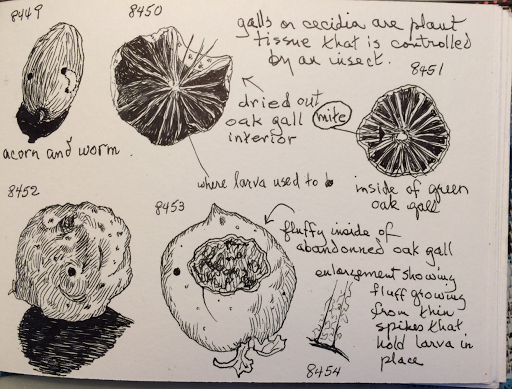 8449
acorn and worm.
8450
galls or cecidia are plant
tissue that is controlled
by an insect.
dried out
oak gall
interior
where larva used to b
8451
mite
inside of green
oak gall
8452
8453
fluffy inside of
abandonned oak gall
enlargement showing
fluff growing
from thin
spikes that
hold larva in
place
8454